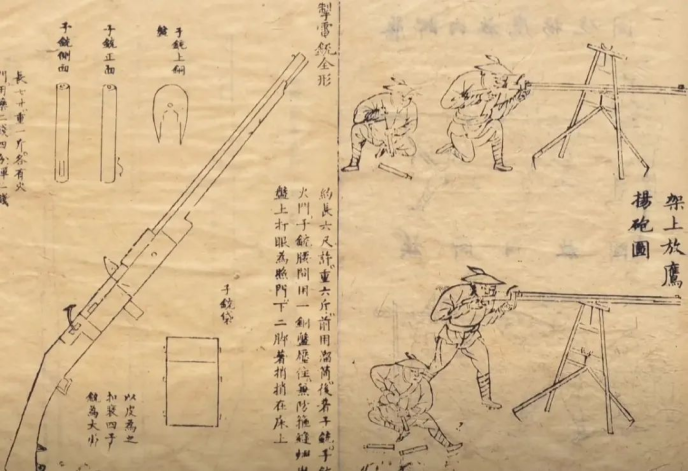 架上放鷹
揚砲圖
掣電銃全形
約長六尺許重六斤前用溜筒後著子銃子
火門子銃腰間用一銅盤壓住無防
盤上打眼為照門下二脚著捎捎在床上
子銃上銅
盤
子銃正面
子銃側面
長七寸重一斤各有火
門用藥二錢四分彈一錢
子銃袋
以皮為之
扣袋四子
銃為大小